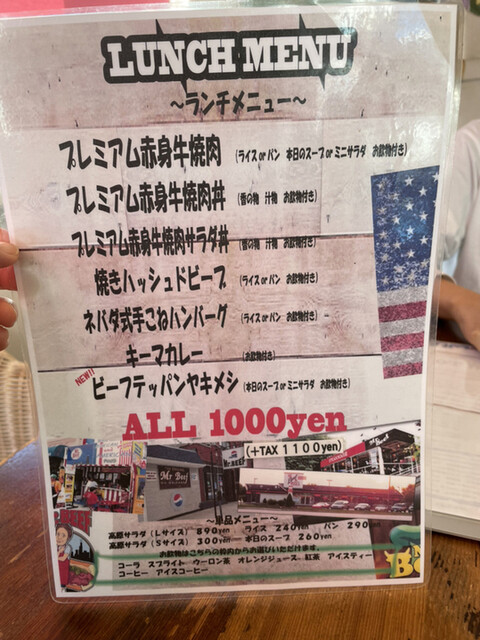 LUNCH MENU
～ランチメニュー～
プレミアム赤身牛焼肉 (ライス or パン 本日のスープ or ミニサラダ お飲物付き)
プレミアム赤身牛焼肉丼 (香の物 汁物 お飲物付き)
プレミアム赤身牛焼肉サラダ丼 (香の物 汁物 お飲物付き)
焼きハッシュドビーフ (ライス or パン お飲物付き)
ネバダ式手こねハンバーグ (ライス or パン お飲物付き)
キーマカレー (お飲物付き)
NEW!! ビーフテッパンヤキメシ (本日のスープ or ミニサラダ お飲物付き)
ALL 1000yen
(+TAX 1100yen)
Mr Beef
～単品メニュー～
高原サラダ (Lサイズ) 890yen ライス 240yen パン 290
高原サラダ (Sサイズ) 300yen 本日のスープ 260yen
お飲物はこちらの枠内からお選びいただけます。
コーラ スプライト ウーロン茶 オレンジジュース 紅茶 アイスティー
コーヒー アイスコーヒー